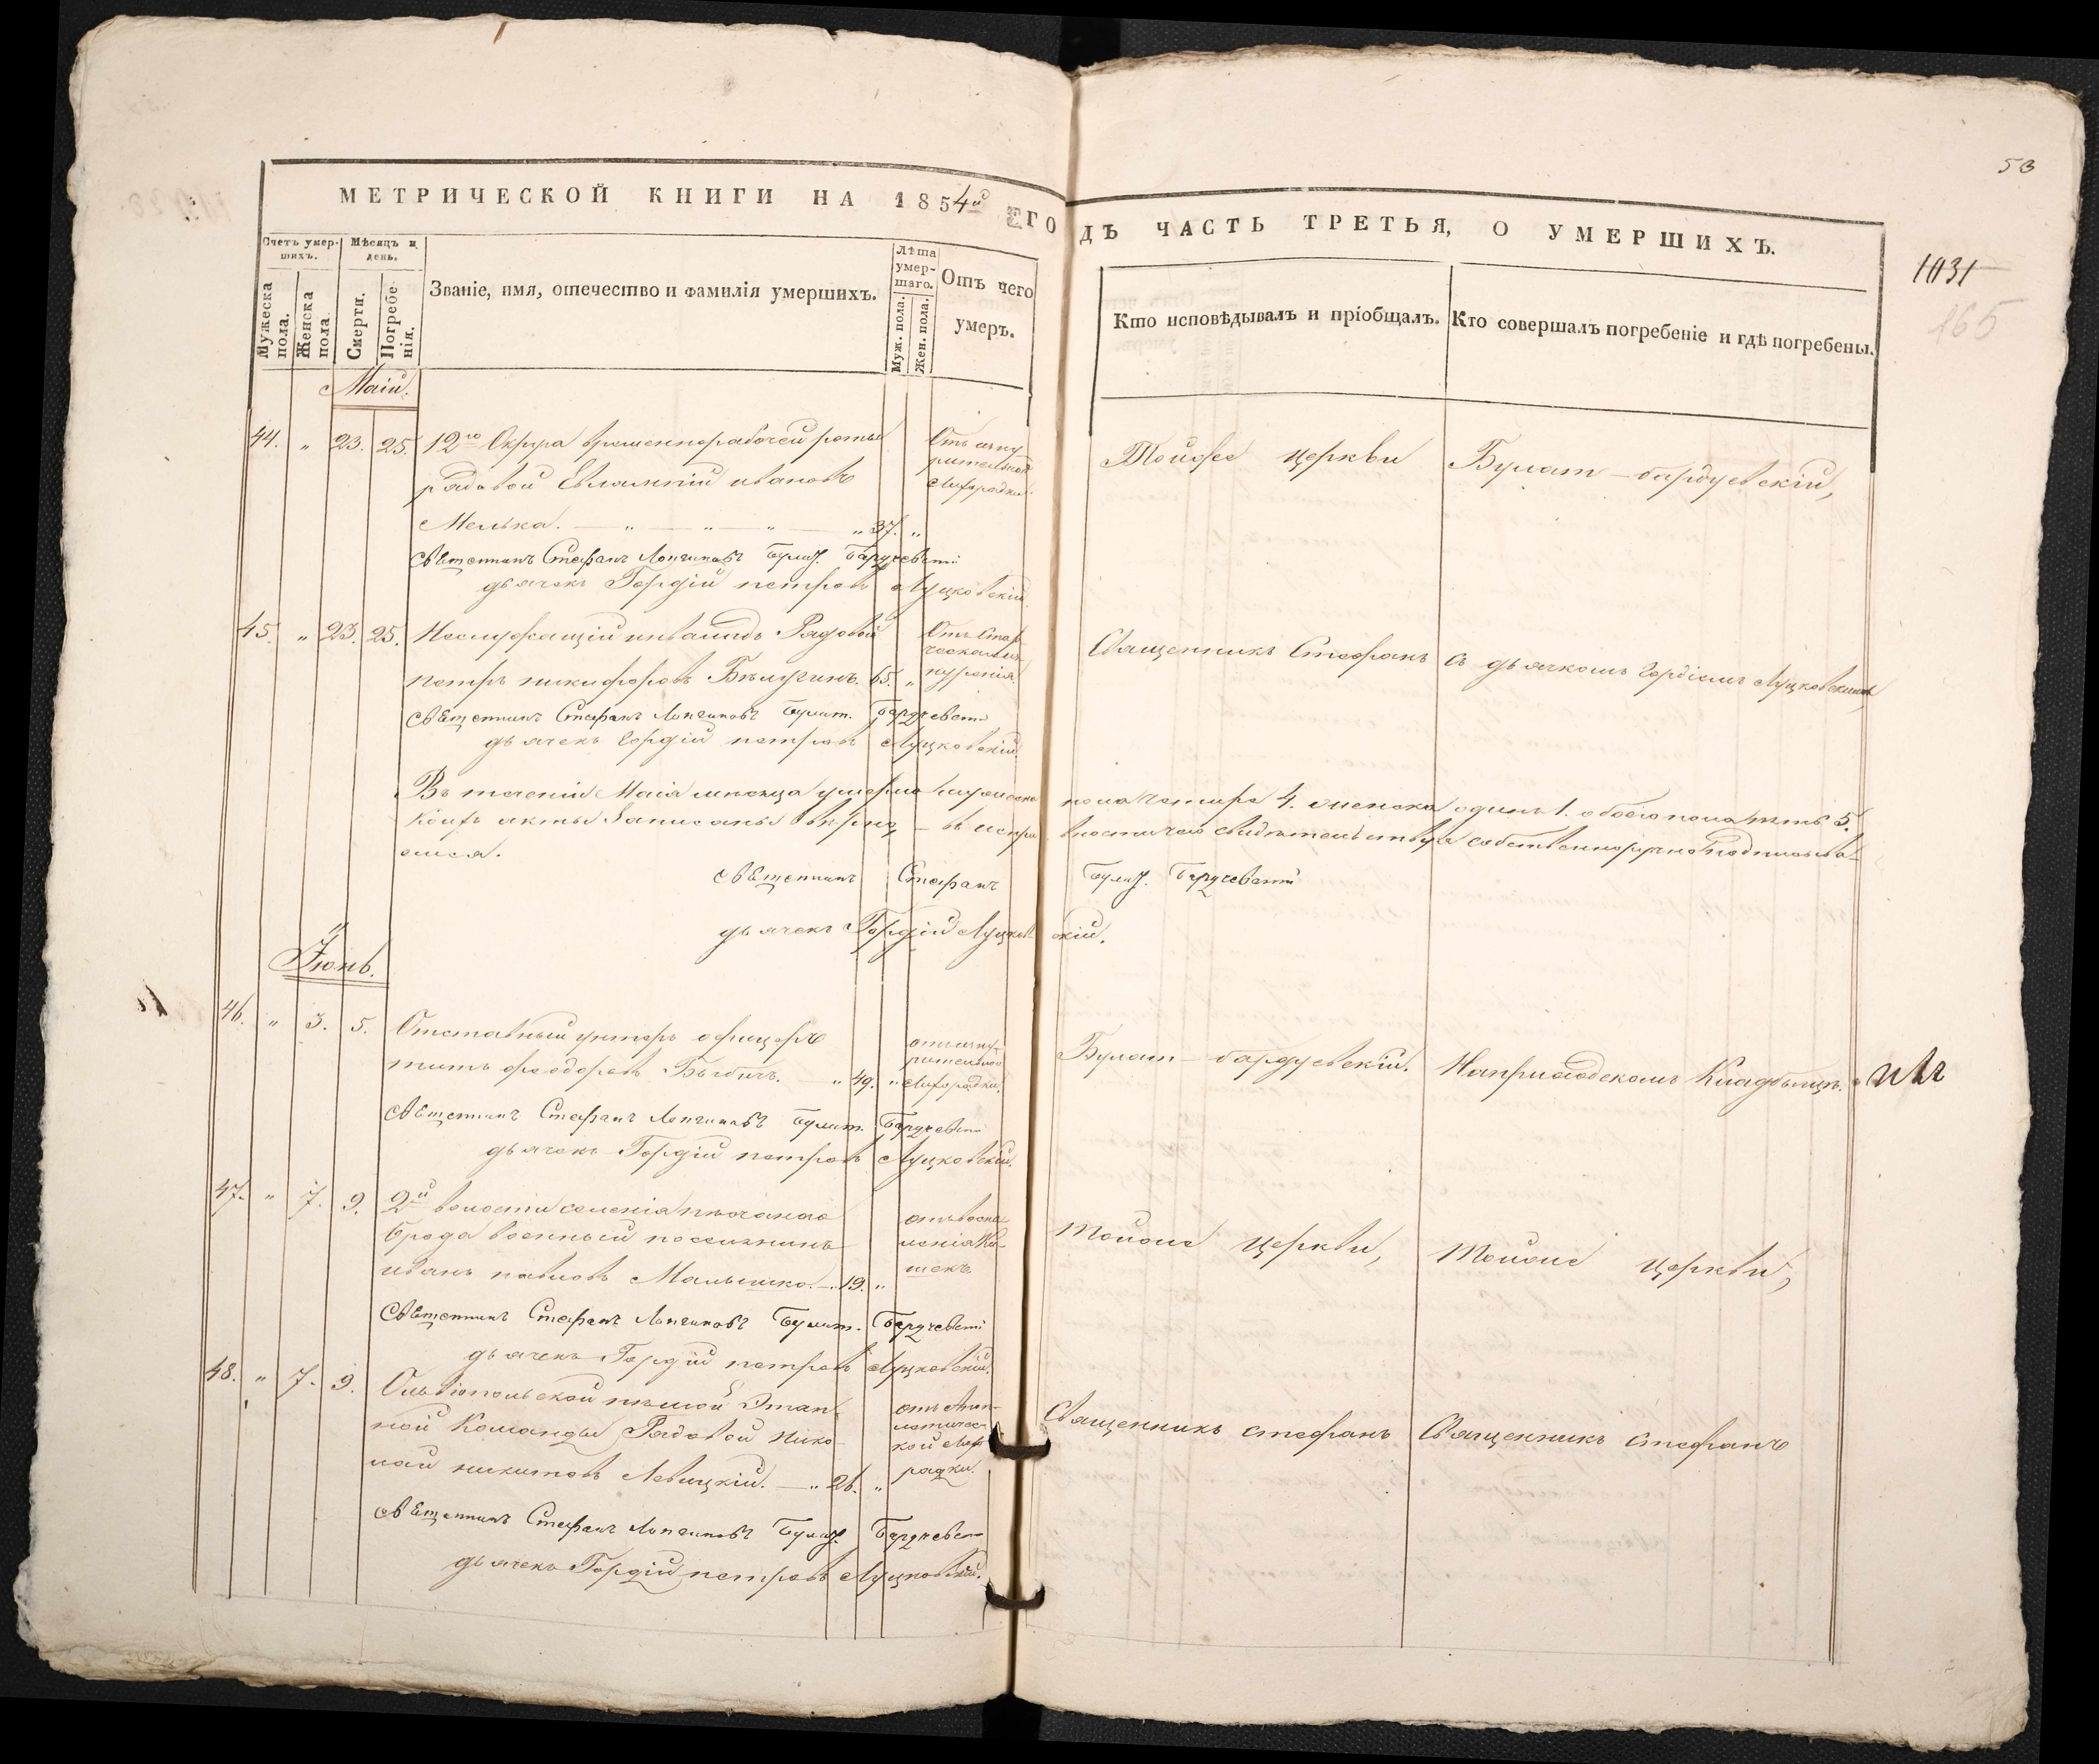 53
МЕТРИЧЕСКОЙ КНИГИ НА 1854й ЕГО ДѢ ЧАСТЬ ТРЕТЬЯ, О УМЕРШИХЪ.
1031
165
Счетъ умершихъ.
Мужеска пола.
Женска пола
Мѣсяцъ и день.
Смерти.
Погребенія.
Званіе, имя, отечество и фамилія умершихъ.
Лѣта умершаго.
Муж. пола.
Жен. пола.
Отъ чего умеръ.
Кто исповѣдывалъ и пріобщалъ.
Кто совершалъ погребеніе и гдѣ погребены.
Маій.
44. " 23. 25. 12го Округа временнорабочей роты
рядовой Евлампій ивановъ
Мелька. — " — " — " — " 37. "
Отъ изну
рительной
лихорадки.
Тойже церкви Булат-бардуевскій,
Священникъ Стефанъ Булат. Бардуевскій
дьячекъ Гордій петровъ Луцковскій.
45. " 23. 25. Неслужащій инвалидъ Рядовой
петръ никифоровъ Бѣлугинъ. 65. "
Отъ Стар
ческаго из
нуренія.
Священникъ Стефанъ съ дьячкомъ Гордіемъ Луцковскимъ
Священникъ Стефанъ Булат. Бардуевскій
дьячекъ Гордій петровъ Луцковскій.
Въ теченіи Маія месяца умерло мужеска пола четыре 4. женска одинъ 1. обоего пола пять 5.
Коихъ акты Записаны вѣрно, — въ испра вности чего свидѣтельствуя собственноручно подписыва-
емся.
Священникъ Стефанъ Булат. Бардуевскій
дьячекъ Гордій Луцков скій.
Іюнь.
46. " 3. 5. Отставный унтеръ офицеръ
титъ феодоровъ Бычъ. — " 49. "
от изну-
рительной
Лихорадки.
Булат-бардуевскій. На приходскомъ Кладбищѣ.
Священникъ Стефанъ Булат. Бардуевскій
дьячекъ Гордій петровъ Луцковскій.
47. " 7. 9. 2й волости селенія песчанаго
брода военный поселянинъ
иванъ павловъ Малышко. — " 19. "
отъ воспа
ленія Ки-
шекъ.
тойже Церкви, тойже Церкви,
Священникъ Стефанъ Булат. Бардуевскій
дьячекъ Гордій петровъ Луцковскій.
48. " 7. 9. Ольвіопольской пѣшой Этап-
ной Команды Рядовой Нико-
лай никитовъ Левицкій. — " 26. "
кой Лихо
радки.
Священникъ стефанъ Священникъ стефанъ
Священникъ Стефанъ Булат. Бардуевскій
дьячекъ Гордій петровъ Луцковскій.